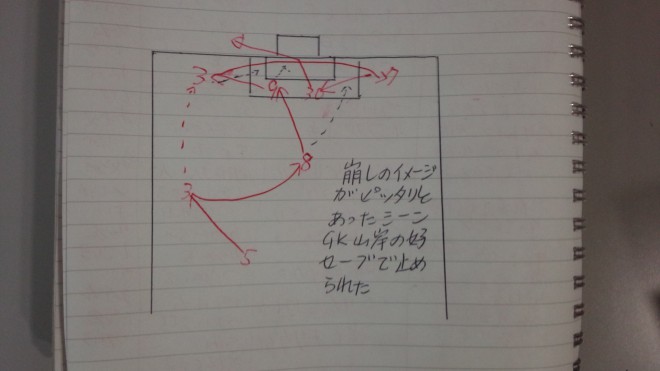 3
7
9
30
8
3
5
崩しのイメージ
がピッタリと
あったシーン
GK山岸の好
セーブで止め
られた